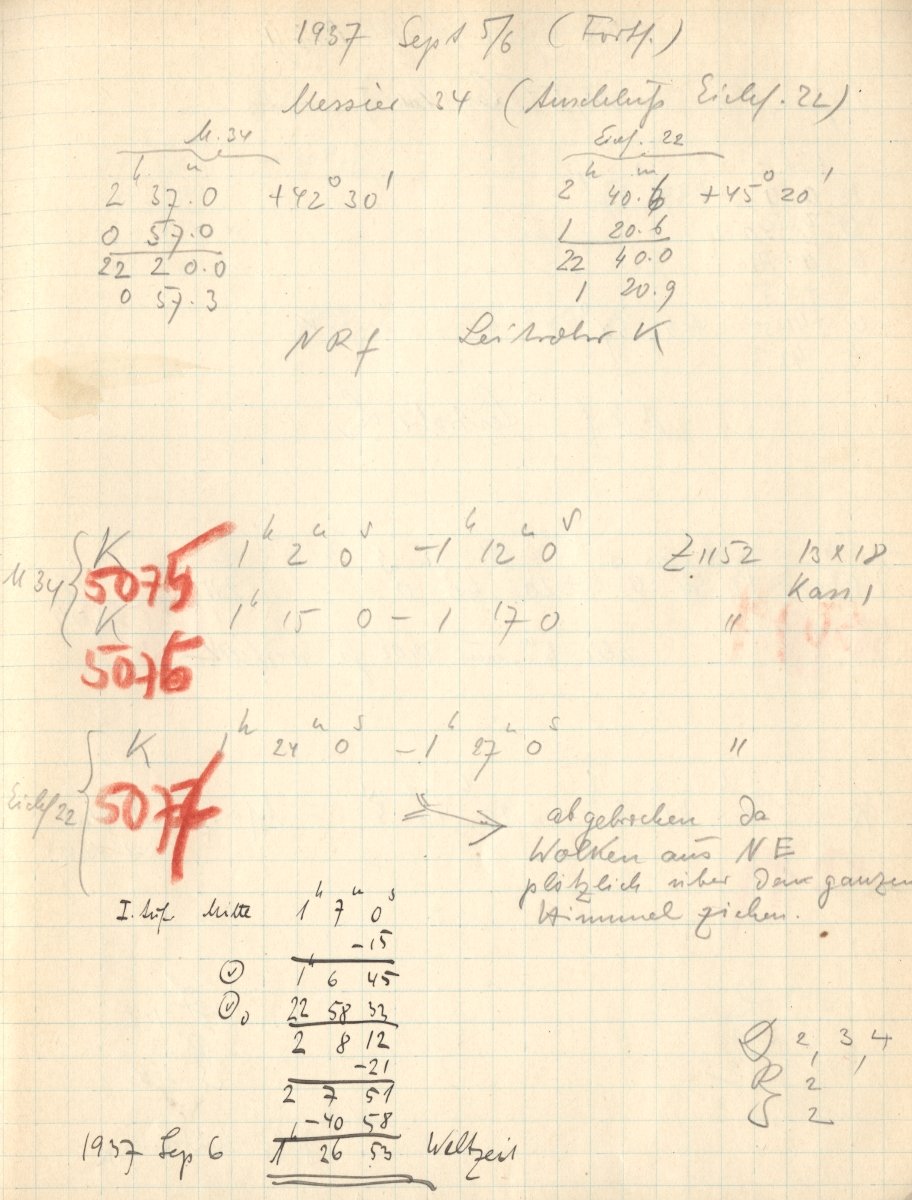 1937 Sept 5/6 (Forts.)
Messier 34 (Anschluß Eichf. 22)
M. 34
2h 37m.0 +42° 30'
0 57.0
22 20.0
0 57.3
Eichf. 22
2h 40m.6 +45° 20'
1 20.6
22 40.0
1 20.9
NRf Leitrohr K
M 34
K 1h 2m 0s – 1h 12m 0s Z 1152 13x18
5075 Kass 1
K 1h 15 0 – 1 17 0 "
5076
Eichf 22
K 1h 24m 0s – 1h 27m 0s "
5077
abgebrochen da
Wolken aus NE
plötzlich über den ganzen
Himmel ziehen.
I. Auf. Mitte 1h 7m 0s
-15
1h 6 45
22 58 33
2 8 12
-21
2 7 51
-40 58
1937 Sep 6 1h 26 53 Weltzeit
Q 2, 3, 4
R 2
S 2